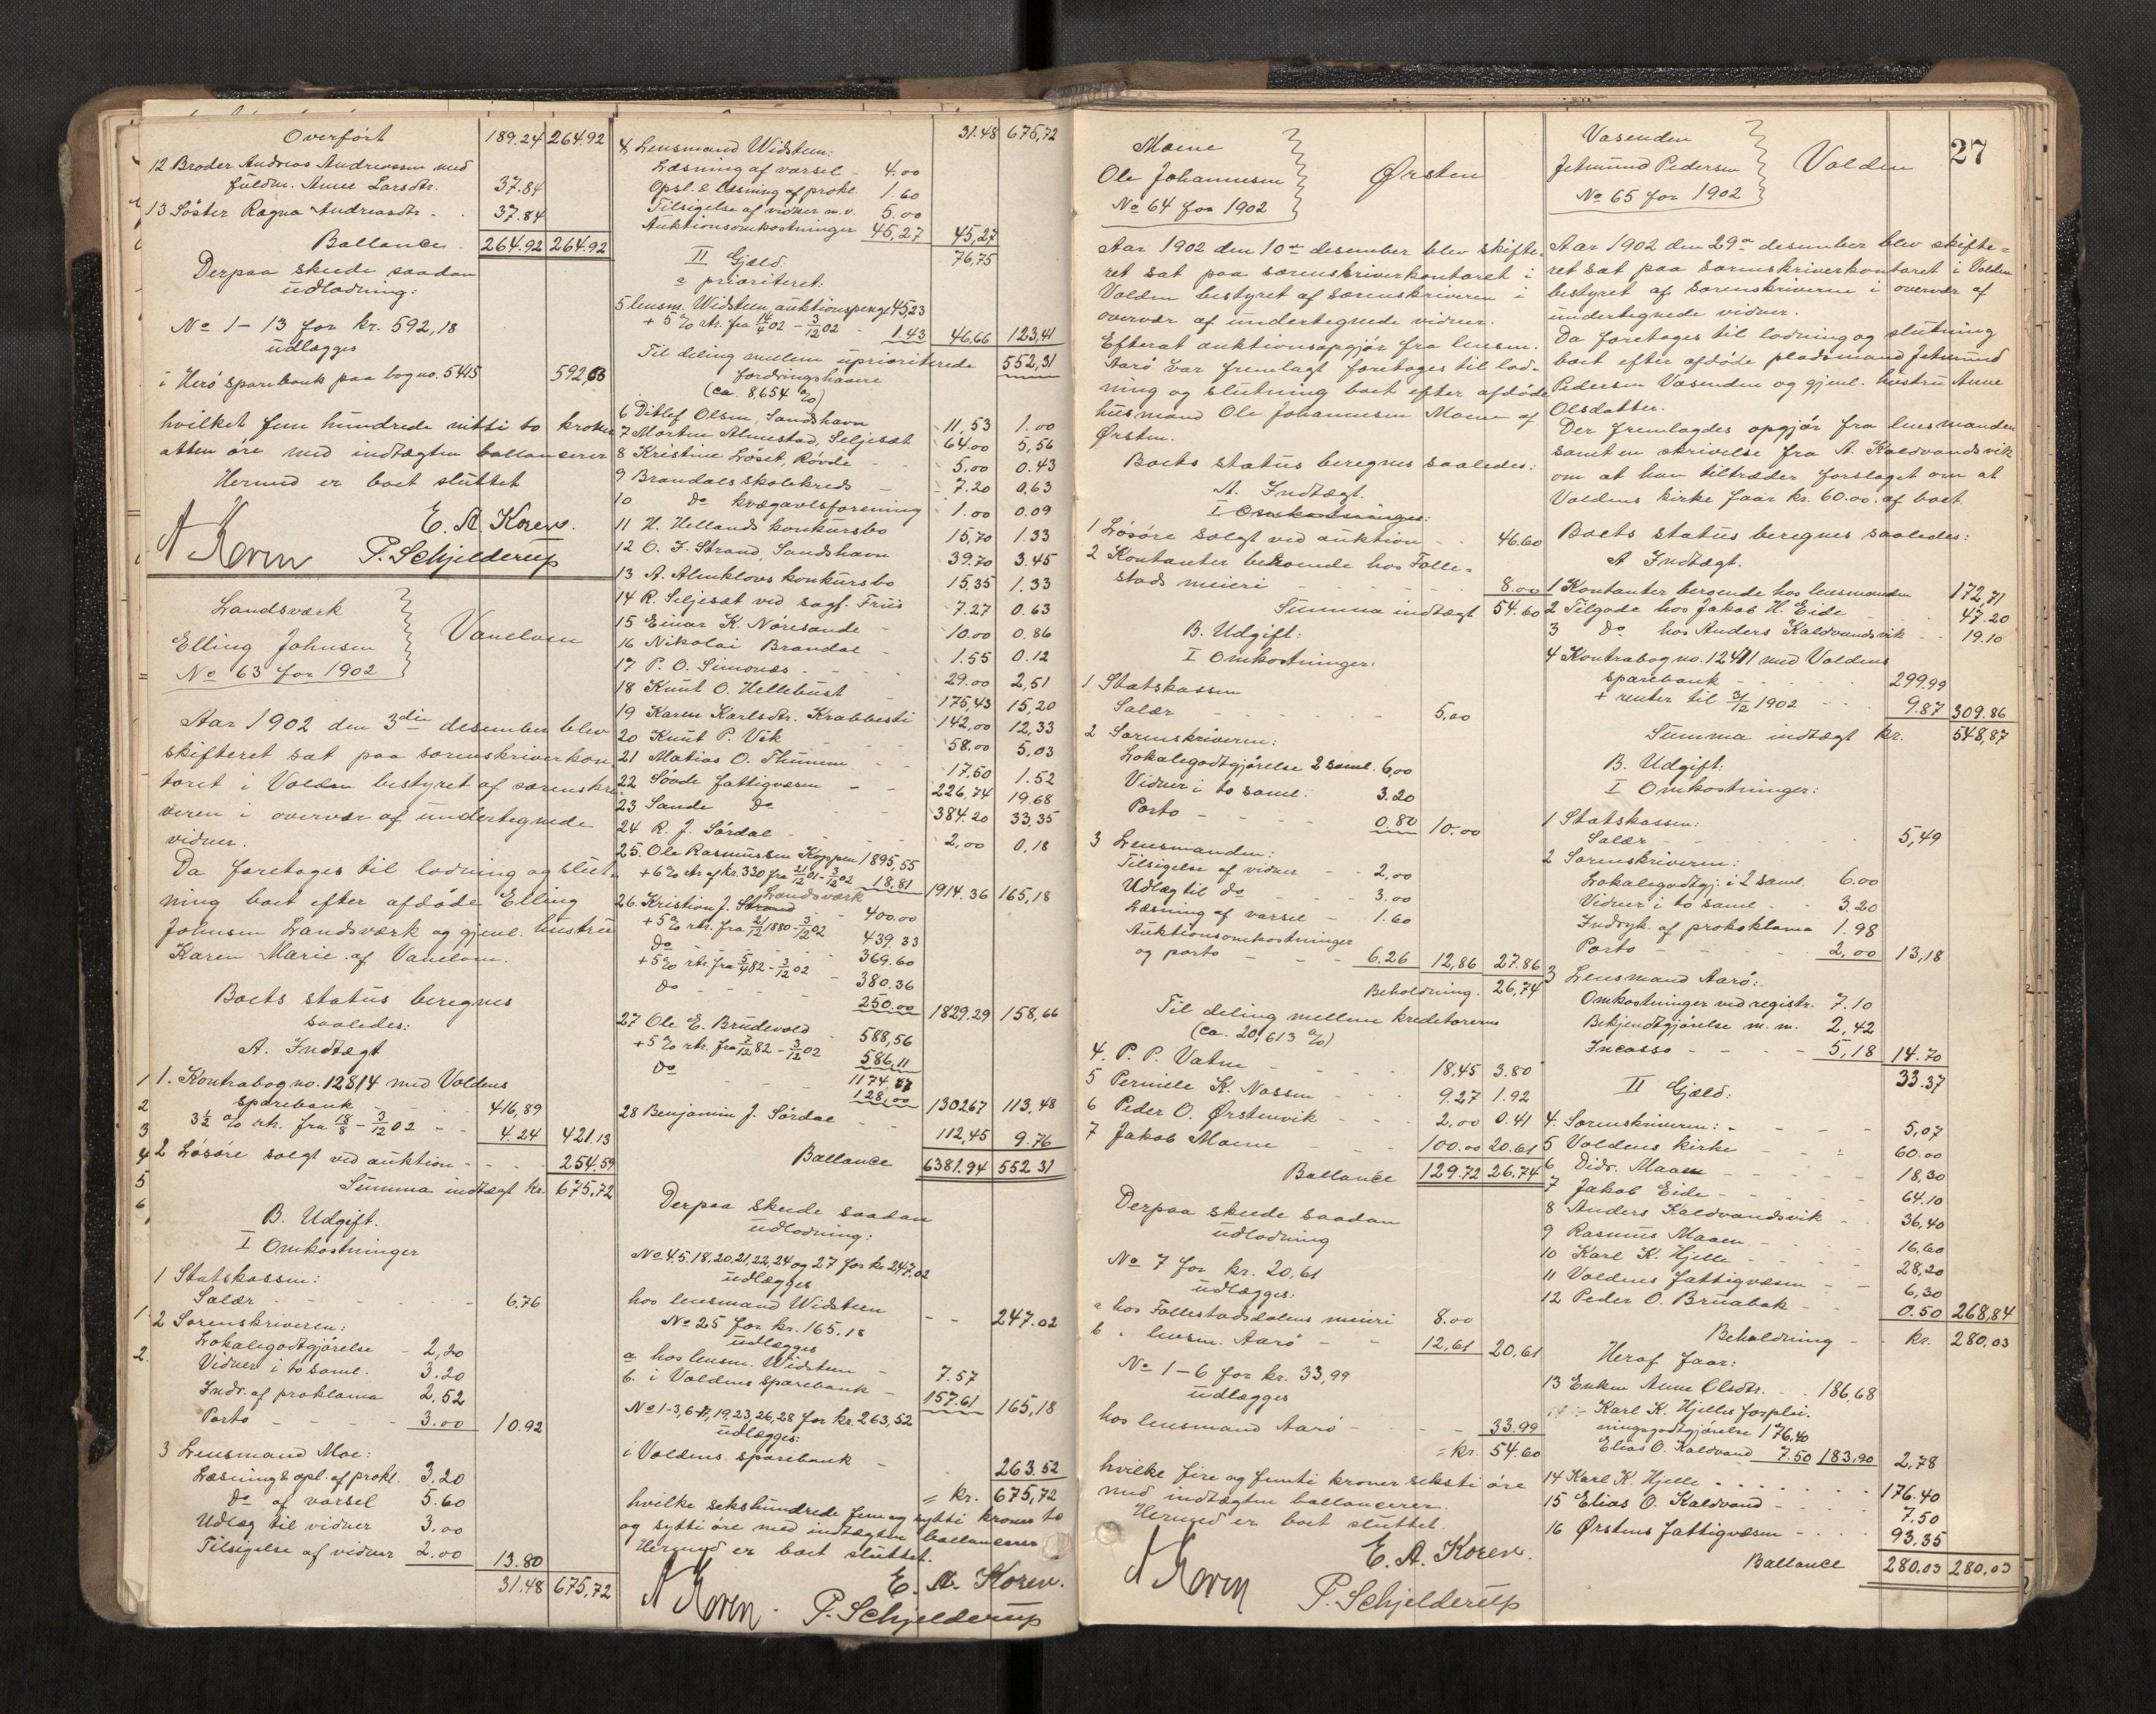 Overført 189.24 264.92
12 Broder Andreas Andreassen med
fuldm. Anne Larsdtr. 37.84
13 Søster Ragna Andreasdtr. - . 37.84
Ballance . 264.92 264.92
Derpaa skede saadan
udlodning:
No 1 - 13 for kr. 592,18
udlægges
i Herø sparebank paa bog no. 5445
hvilket fem hundrede nitti to kroner
atten øre med indtægten ballancerer
Hermed er boet sluttet
E. A. Koren.
A Koren P. Schjelderup
Landsværk
Elling Johnsen Vanelven
No 63 for 1902
Aar 1902 den 3die desember blev
skifteret sat paa sorenskriverkon-
toret i Volden bestyret af sorenskri-
veren i overvær af undertegnede
vidner.
Da foretages til lodning og slut-
ning boet efter afdøde Elling
Johnsen Landsværk og gjenl. hustru
Karen Marie af Vanelven.
Boets status beregnes
saaledes:
A. Indtægt
1 1. Kontrabog no. 12814 med Voldens
2 sparebank - - - 416,89
3 3½ % rtr. fra 18/8 - 3/12 02 - - 4.24 421.13
4 2 Løsøre solgt ved auktion - - - . 254.59
5 Summa indtægt kr. 675,72
6 B. Udgift.
I Omkostninger
1 Statskassen:
Salær - - - - - - 6.76
2 Sorenskriveren:
Lokalegodtgjørelse - 2,20
Vidner i to saml. 3.20
Indr. af proklama 2,52
Porto - - - - - 3.00 10.92
3 Lensmand Moe:
Læsning & opl. af prokl. 3.20
do af varsel 5.60
Udlæg til vidner 3.00
Tilsigelse af vidner 2.00 13.80
31.48 675,72
31.48 675,72
4 Lensmand Widsteen:
Læsning af varsel - 4.00
Opsl. & læsning af prokl. 1.60
Tilsigelse af vidner m.v. 5.00
Auktionsomkostninger 45,27 45,27
76,75
II Gjæld.
a prioriteret:
5 lensm. Widsteen, auktionspenge 45,23
+ 5 % rtr. fra 14/4 02 - 3/12 02 1.43 46,66 123,41
Til deling mellem uprioriterede 552,31
fordringshavere
(ca. 8,654 %)
6 Ditlef Olsen, Sandshavn 11,53 1.00
7 Morten Almestad, Siljesæt 64.00 5,56
8 Kristine Løset, Rovde - - 5,00 0.43
9 Brandals skolekreds - 7.20 0,63
10 do kvægavlsforening 1.00 0.09
11 H. Hellands konkursbo 15,70 1.33
12 O. J. Strand, Sandshavn 39.70 3.45
13 A. Almklovs konkursbo 15,35 1.33
14 R. Siljesæt ved sagf. Friis 7.27 0.63
15 Einar K. Nøresande - 10.00 0.86
16 Nikolai Brandal - 1.55 0.12
17 P. O. Simonæs - - - - 29.00 2,51
18 Knut O. Hellebust - 175,43 15,20
19 Karen Karlsdtr. Krabbesti 142,00 12,33
20 Knut P. Vik - - - 58.00 5,03
21 Matias O. Thunem - - 17,60 1.52
22 Søvde fattigvæsen - - 226,74 19.68
23 Sande do - - 384.20 33,35
24 R. J. Sørdal - - - 2,00 0,18
25. Ole Rasmussen Koppen 1895,55
+ 6% rtr. af kr. 320 fra 21/12 01 - 3/12 02 18,81 1914.36 165,18
Landsværk
26. Kristian J. Strand - - 400.00
+ 5% rtr. fra 21/12 1880 - 3/12 02 439.33
do - - - - 369.60
+ 5% rtr. fra 5/4 82 - 3/12 02 - 380.36
do - - - - 250.00 1829.29 158,66
27 Ole E. Brudevold - 588,56
+ 5% rtr. fra 2/12 82 - 3/12 02 586,11
1174,67
do - - - 128,00 1302.67 113,48
28 Benjamin J. Sørdal - - 112,45 9.76
Ballance 6381.94 552 31
Derpaa skede saadan
udlodning:
No 4.5.18,20,21,22,24 og 27 for kr 247.02
udlægges
hos lensmand Widsteen - - 247.02
No 25 for kr. 165.18
udlægges
a hos lensm. Widsteen - 7.57
b. i Voldens sparebank - 157.61 165,18
No 1-3, 6-17, 19, 23, 26, 28 for kr. 263,52
udlægges:
i Voldens sparebank - 263.52
= kr. 675,72
hvilke sekshundrede fem og sytti kroner to
og sytti øre med indtægten ballancerer
Hermed er boet sluttet.
E. A. Koren.
A Koren. P. Schjelderup
Moene
Ole Johannesen Ørsten
No 64 for 1902
Aar 1902 den 10de desember blev skifte-
ret sat paa sorenskriverkontoret i
Volden bestyret af sorenskriveren i
overvær af undertegnede vidner.
Efterat auktionsopgjør fra lensm.
Aarø var fremlagt foretages til lod-
ning og slutning boet efter afdøde
husmand Ole Johannesen Moene af
Ørsten.
Boets status beregnes saaledes:
A. Indtægt.
I Omkostninger:
1 Løsøre solgt ved auktion - . . 46.60
2 Kontanter beroende hos Folle-
stads meieri - - - - - 8.00
Summa indtægt 54.60
B. Udgift:
I Omkostninger:
1. Statskassen
Salær - - - - - 5,00
2 Sorenskriveren:
Lokalegodtgjørelse 2 saml. 6,00
Vidner i to saml. 3.20
Porto - - - - 0.80 10.00
3 Lensmanden:
Tilsigelse af vidner - - 2,00
Udlæg til do - - - 3.00
Læsning af varsel - 1.60
Auktionsomkostninger
og porto - - - 6.26 12,86 27.86
Beholdning. 26,74
Til deling mellem kreditorerne
(ca. 20,613 %)
4. P. P. Vatne - - - - 18,45 3.80
5 Pernille K. Nossen - - - 9.27 1.92
6 Peder O. Ørstenvik - - - 2,00 0.41
7 Jakob Moene - - 100.00 20.61
Ballance 129.72 26.74
Derpaa skede saadan
udlodning
No 7 for kr. 20,61
udlægges:
a hos Follestadsdalens meieri 8.00
b " lensm. Aarø - - 12,61 20,61
No 1 - 6 for kr. 33,99
udlægges
hos lensmand Aarø - - - 33.99
= kr. 54.60
hvilke fire og femti kroner seksti øre
med indtægten ballancerer.
Hermed er boet sluttet.
E. A. Koren.
A Koren P. Schjelderup
27
Vasenden
Jetmund Pedersen Volden
No 65 for 1902
Aar 1902 den 29de desember blev skifte-
ret sat paa sorenskriverkontoret i Volden
bestyret af sorenskriveren i overvær af
undertegnede vidner.
Da foretages til lodning og slutning
boet efter afdøde pladsmand Jetmund
Pedersen Vasenden og gjenl. hustru Anne
Olsdatter.
Der fremlagdes opgjør fra lensmanden
samt en skrivelse fra A. Kaldvandsvik
om at han tiltræder forslaget om at
Voldens kirke faar kr. 60.00 af boet
Boets status beregnes saaledes:
A Indtægt.
1 Kontanter beroende hos lensmanden 172,71
2 Tilgode hos Jakob H. Eide - - 47.20
3 do hos Anders Kaldvandsvik - - 19.10
4 Kontrabog no. 12411 med Voldens
sparebank - - - - - 299.99
+ renter til 31/12 1902 - - - 9.87 309.86
Summa indtægt kr. 548,87
B. Udgift:
I Omkostninger:
1 Statskassen:
Salær - - - - - 5,49
2 Sorenskriveren:
Lokalegodtgj. i 2 saml. 6.00
Vidner i to saml. - . 3.20
Indryk. af prokoklama 1.98
Porto - - - - - 2,00 13,18
3 Lensmand Aarø:
Omkostninger ved registr. 7.10
Bekjendtgjørelse m. m. 2,42
Incasso - - - - 5,18 14.70
33.37
II Gjæld:
4. Sorenskriveren: - - - - 5,07
5 Voldens kirke - - - 60.00
6 Didr. Maaen - - - - - 18,30
7 Jakob Eide - - - - - 64.10
8 Anders Kaldvandsvik - - 36,40
9 Rasmus Maaen - - - - 16,60
10 Karl K. Hjelle - - - - 28,20
11 Voldens fattigvæsen - - 6,30
12 Peder O. Bruabak - - 0.50 268,84
Beholdning - - kr. 280,03
Heraf faar:
13 Enken Anne Olsdtr. . . 186,68
Karl K. Hjelles forplei-
ningsgodtgjørelse 176,40
Elias O. Kaldvand 7.50 183,90 2,78
14 Karl K. Hjelle . . . . . 176.40
15 Elias O. Kaldvand - - - - 7.50
16 Ørstens fattigvæsen - - - . 93.35
Ballance 280,03 280,03